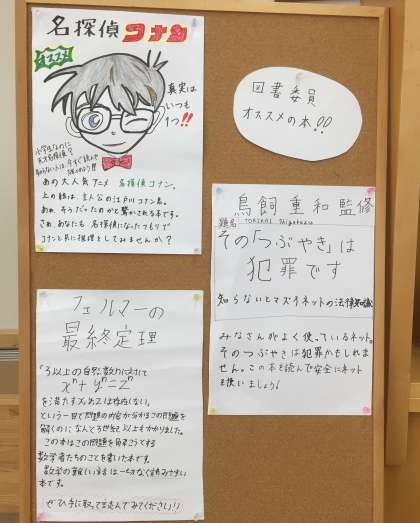 名探偵コナン
真実は
いつも
1つ!!
小学生なのに
あの大人気アニメ 名探偵コナン。
上の絵は、主人公の江戸川コナン君。
さぁ、あなたも 名探偵になったつもりで
コナンと共に推理をしてみませんか?
図書委員
オススメの本!!
鳥飼 重和 監修
題名
その「つぶやき」は
犯罪です
知らないとマズイネットの法律知識
みなさんがよく使っているネット。
そのつぶやきは犯罪かもしれま
せん。この本を読んで安全にネット
を使いましょう!
フェルマーの
最終定理
「3以上の自然数nに対して
xⁿ + yⁿ = zⁿ
を満たすx,y,zは存在しない。
という一目で問題の内容が分かるこの問題を
解くのになんと3世紀以上もかかりました。
この本はこの問題を
数学者たちのことを書いた本です。
数学の難しい話は一切なく読みやすい
本です。
ぜひ手に取って読んでみてください!!